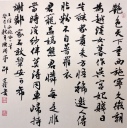 艷色天下重西施寧久微朝
為越溪女暮作吳宮妃賤
日豈殊眾貴來方悟稀邀
人傅脂粉不自著羅衣君
寵益嬌態君憐無是非當
時浣紗伴莫得同車歸持
謝鄰家子效顰安可希